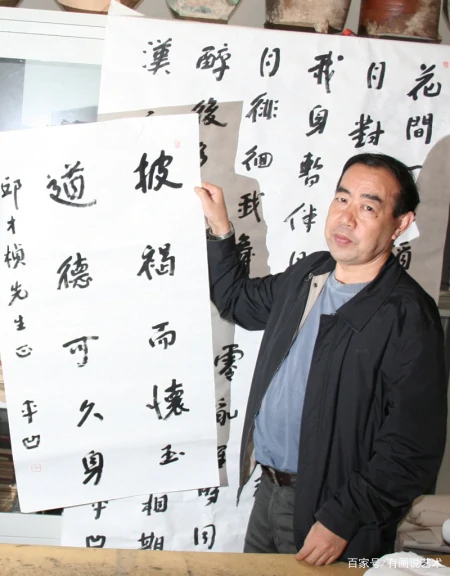 披褐而懷玉
道德可久身
邱才楨先生正 平凹
花間一
月對
我身暫伴
月徘徊我舞
零亂醒時同
醉後各
相期
漢
平凹
百家号/有画说艺术